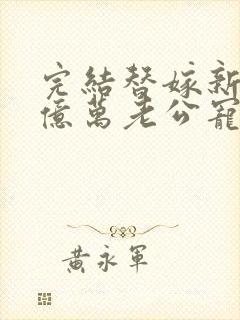 完結替嫁新
億萬老公寵
黃永軍